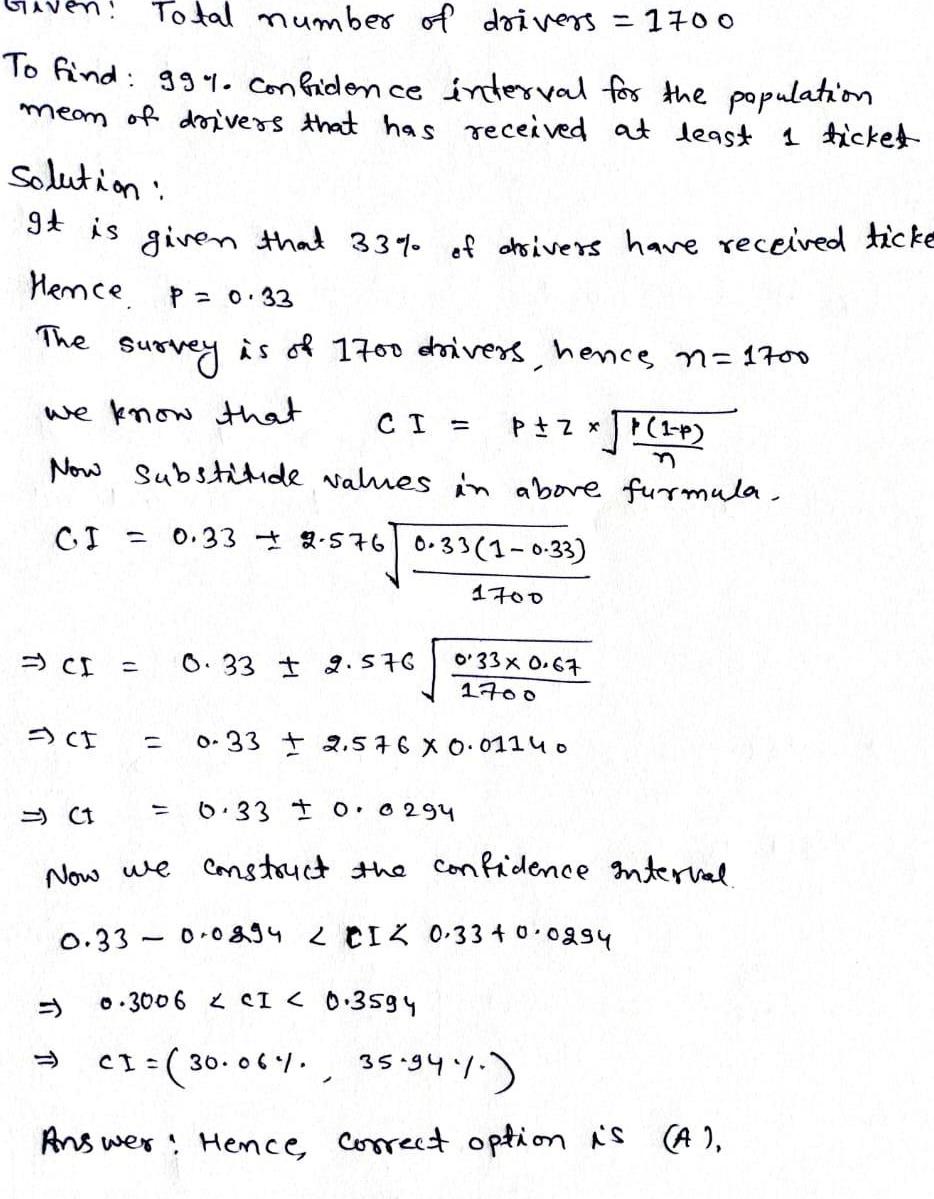 Given: Total number of drivers = 1700
To find: 99%. confidence interval for the population
mean of drivers that has received at least 1 ticket
Solution:
It is given that 33% of drivers have received ticke
Hence P = 0.33
The survey is of 1700 drivers, hence, n = 1700
we know that CI = P ± Z × √(P(1-P)/n)
Now Substitude values in above furmula.
CI = 0.33 ± 2.576 √(0.33(1-0.33)/1700)
⇒ CI = 0.33 ± 2.576 √(0.33 × 0.67/1700)
⇒ CI = 0.33 ± 2.576 × 0.01140
⇒ CI = 0.33 ± 0.0294
Now we construct the confidence interval.
0.33 - 0.0294 < CI < 0.33 + 0.0294
⇒ 0.3006 < CI < 0.3594
⇒ CI = (30.06%, 35.94%)
Answer: Hence, correct option is (A).